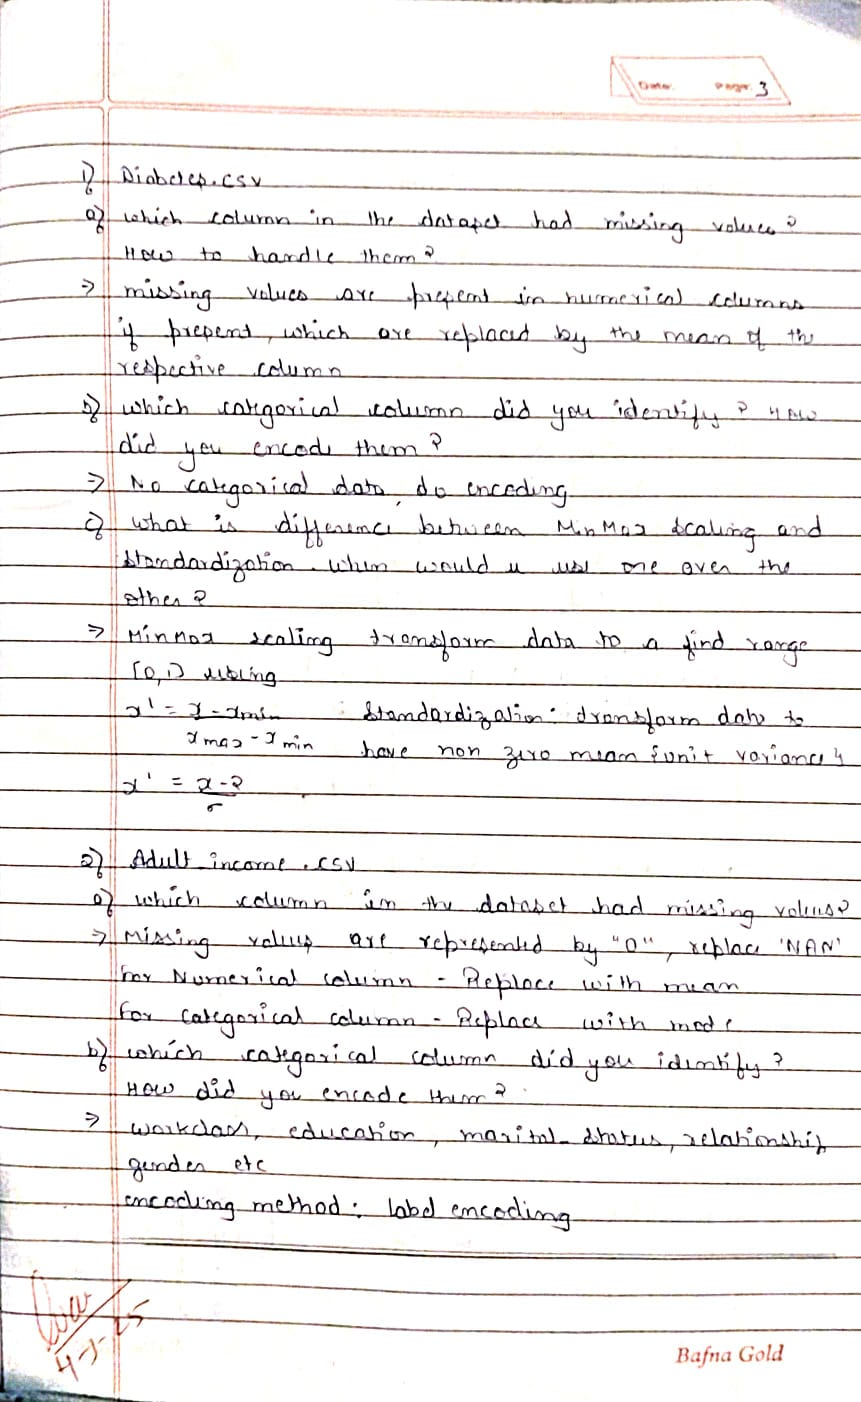 Date: Page: 3
1) Diabetes.csv
a) which column in the dataset had missing values?
How to handle them?
→ missing values are present in numerical columns
if present, which are replaced by the mean of the
respective column
b) which categorical column did you identify? How
did you encode them?
⇒ No categorical data, do encoding
c) what is difference between MinMax scaling and
standardization. when would u use one over the
other?
⇒ MinMax scaling transform data to a find range
[0,1] using
x' = x - xmin : Standardization: transform data to
xmax - xmin have non zero mean & unit variance
x' = x - 
σ
2) Adult income.csv
a) which column in the dataset had missing values?
→ Missing values are represented by "0", replace 'NAN'
for Numerical column - Replace with mean
for categorical column - Replace with mode
b) which categorical column did you identify?
How did you encode them?
⇒ workclass, education, marital-status, relationship
gender etc
encoding method: label encoding
Bafna Gold